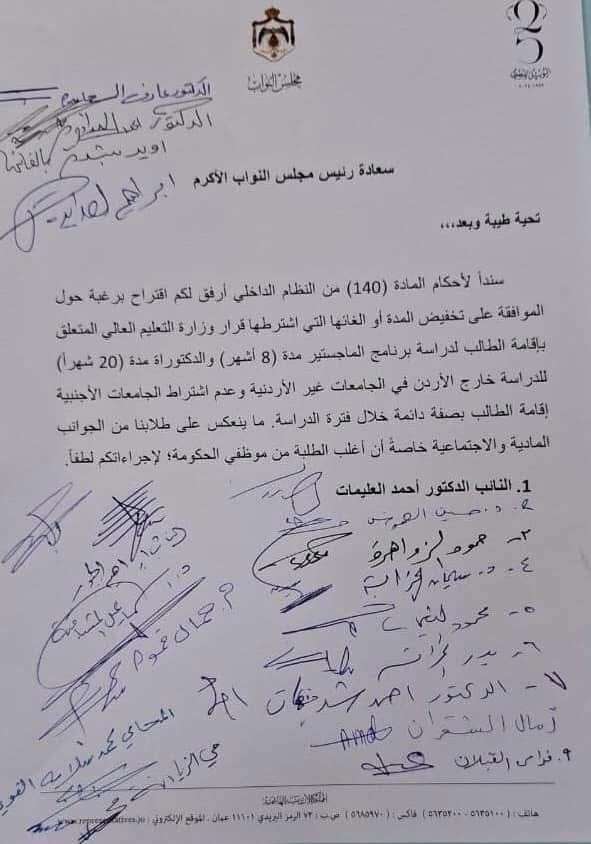 مجلس النواب
الدكتور عارف
الدكتور
ابراهيم
سعادة رئيس مجلس النواب الأكرم
تحية طيبة وبعد،،،
سنداً لأحكام المادة (140) من النظام الداخلي أرفق لكم اقتراح برغبة حول
الموافقة على تخفيض المدة أو الغائها التي اشترطها قرار وزارة التعليم العالي المتعلق
بإقامة الطالب لدراسة برنامج الماجستير مدة (8 أشهر) والدكتوراة مدة (20 شهراً)
للدراسة خارج الأردن في الجامعات غير الأردنية وعدم اشتراط الجامعات الأجنبية
إقامة الطالب بصفة دائمة خلال فترة الدراسة. ما ينعكس على طلابنا من الجوانب
المادية والاجتماعية خاصةً أن أغلب الطلبة من موظفي الحكومة؛ لإجراءاتكم لطفاً.
1. النائب الدكتور أحمد العليمات
٢- د. حسين
٣- حمود الزواهرة
٤- د. سليمان
٥- محمود
٦- بدر
٧- الدكتور احمد
آمال الشقران
٩. فراس القبلان
م. جمال قموه
المحامي محمد
المملكة الأردنية الهاشمية
هاتف : (٥٦٣٥١٠٠ - ٥٦٣٥٢٠٠) فاكس : (٥٦٨٥٩٧٠) ص.ب : ٧٢ الرمز البريدي ١١١٠١ عمان . الموقع الإلكتروني : www.representatives.jo